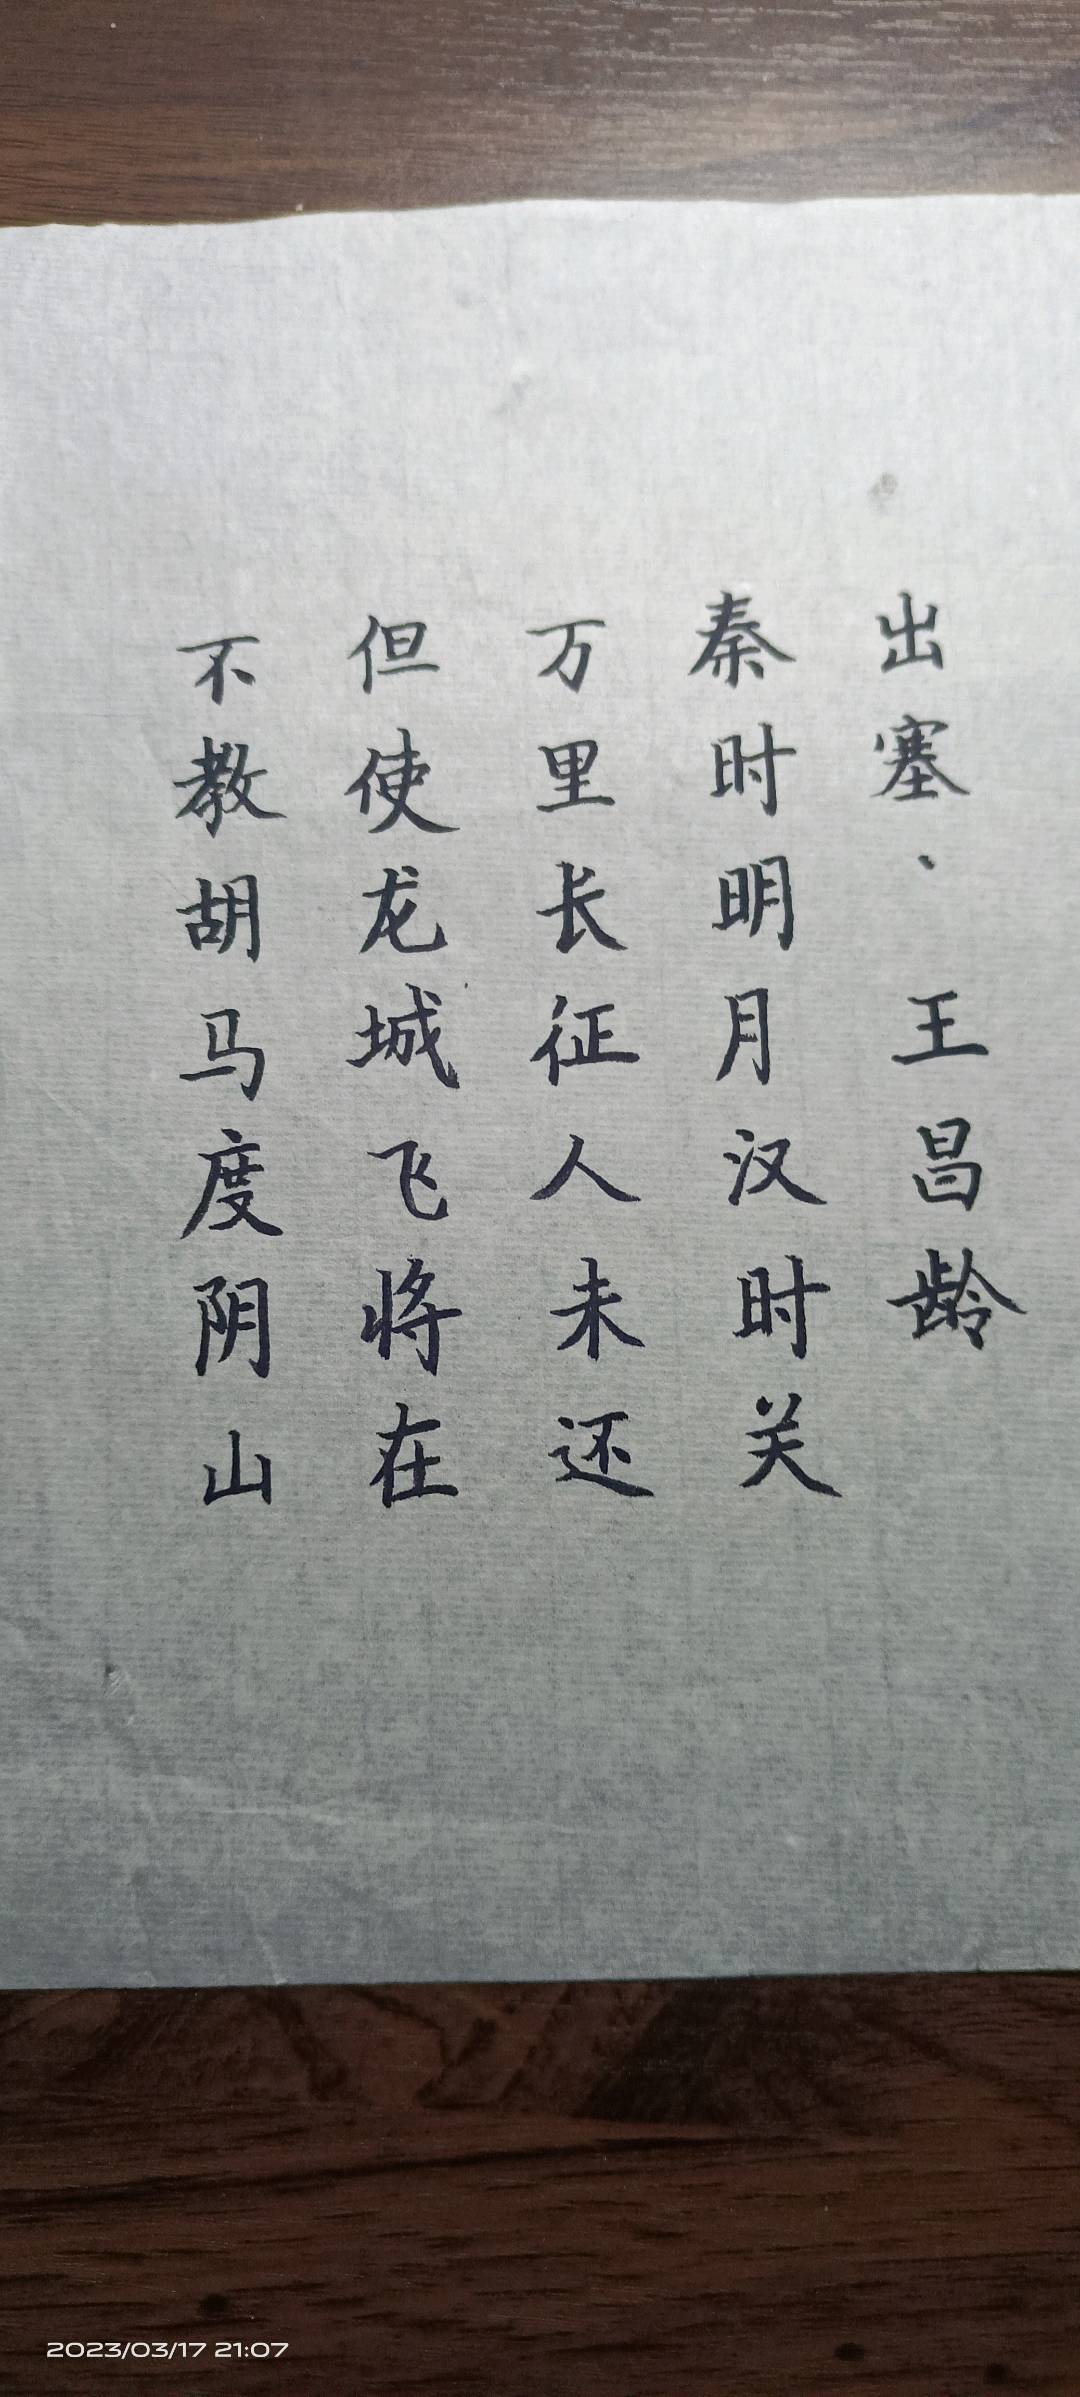 出塞·王昌龄
秦时明月汉时关
万里长征人未还
但使龙城飞将在
不教胡马度阴山
2023/03/17 21:07